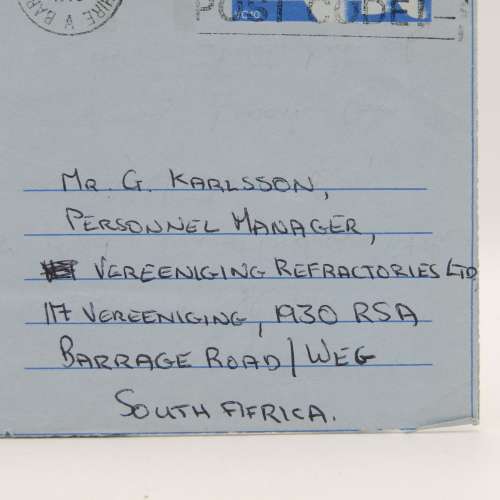 HIRE * BAR
POST CODE
MR. G. KARLSSON,
PERSONNEL MANAGER,
VEREENIGING REFRACTORIES LTD
117 VEREENIGING, 1930 RSA
BARRAGE ROAD/WEG
SOUTH AFRICA.